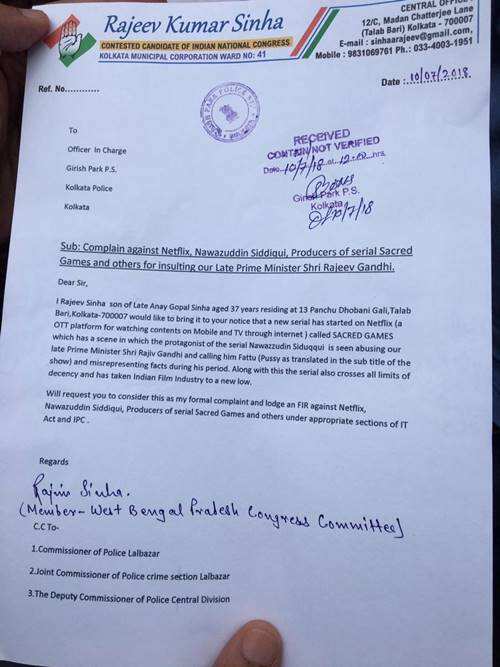 CENTRAL OFFICE
Rajeev Kumar Sinha
12/C, Madan Chatterjee Lane
(Talab Bari) Kolkata - 700007
CONTESTED CANDIDATE OF INDIAN NATIONAL CONGRESS
E-mail : sinhaarajeev@gmail.com,
KOLKATA MUNICIPAL CORPORATION WARD NO: 41
Mobile : 9831069761 Ph.: 033-4003-1951
Ref. No............
Date : 10/07/2018
PARK POLICE
To
RECEIVED
Officer In Charge
CONTAIN NOT VERIFIED
Girish Park P.S
Date 10/7/18 at 12-02 hrs
Kolkata Police
Girish Park P.S.
Kolkata
Kolkata
10/7/18
Sub: Complain against Netflix, Nawazuddin Siddiqui, Producers of serial Sacred
Games and others for insulting our Late Prime Minister Shri Rajeev Gandhi.
Dear Sir,
I Rajeev Sinha son of Late Anay Gopal Sinha aged 37 years residing at 13 Panchu Dhobani Gali,Talab
Bari,Kolkata-700007 would like to bring it to your notice that a new serial has started on Netflix (a
OTT platform for watching contents on Mobile and TV through internet ) called SACRED GAMES
which has a scene in which the protagonist of the serial Nawazzudin Siduqqui is seen abusing our
late Prime Minister Shri Rajiv Gandhi and calling him Fattu (Pussy as translated in the sub title of the
show) and misrepresenting facts during his period. Along with this the serial also crosses all limits of
decency and has taken Indian Film Industry to a new low.
Will request you to consider this as my formal complaint and lodge an FIR against Netflix,
Nawazuddin Siddiqui, Producers of serial Sacred Games and others under appropriate sections of IT
Act and IPC .
Regards
Rajiv Sinha.
(Member- West Bengal Pradesh Congress Committee)
C.C To-
1.Commissioner of Police Lalbazar
2.Joint Commissioner of Police crime section Lalbazar
3.The Deputy Commissioner of Police Central Division